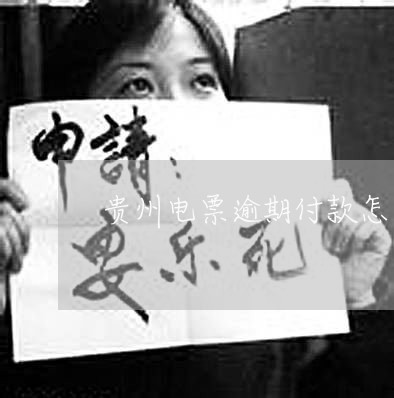 申請：
贵州电票逾期付款怎
要乐死